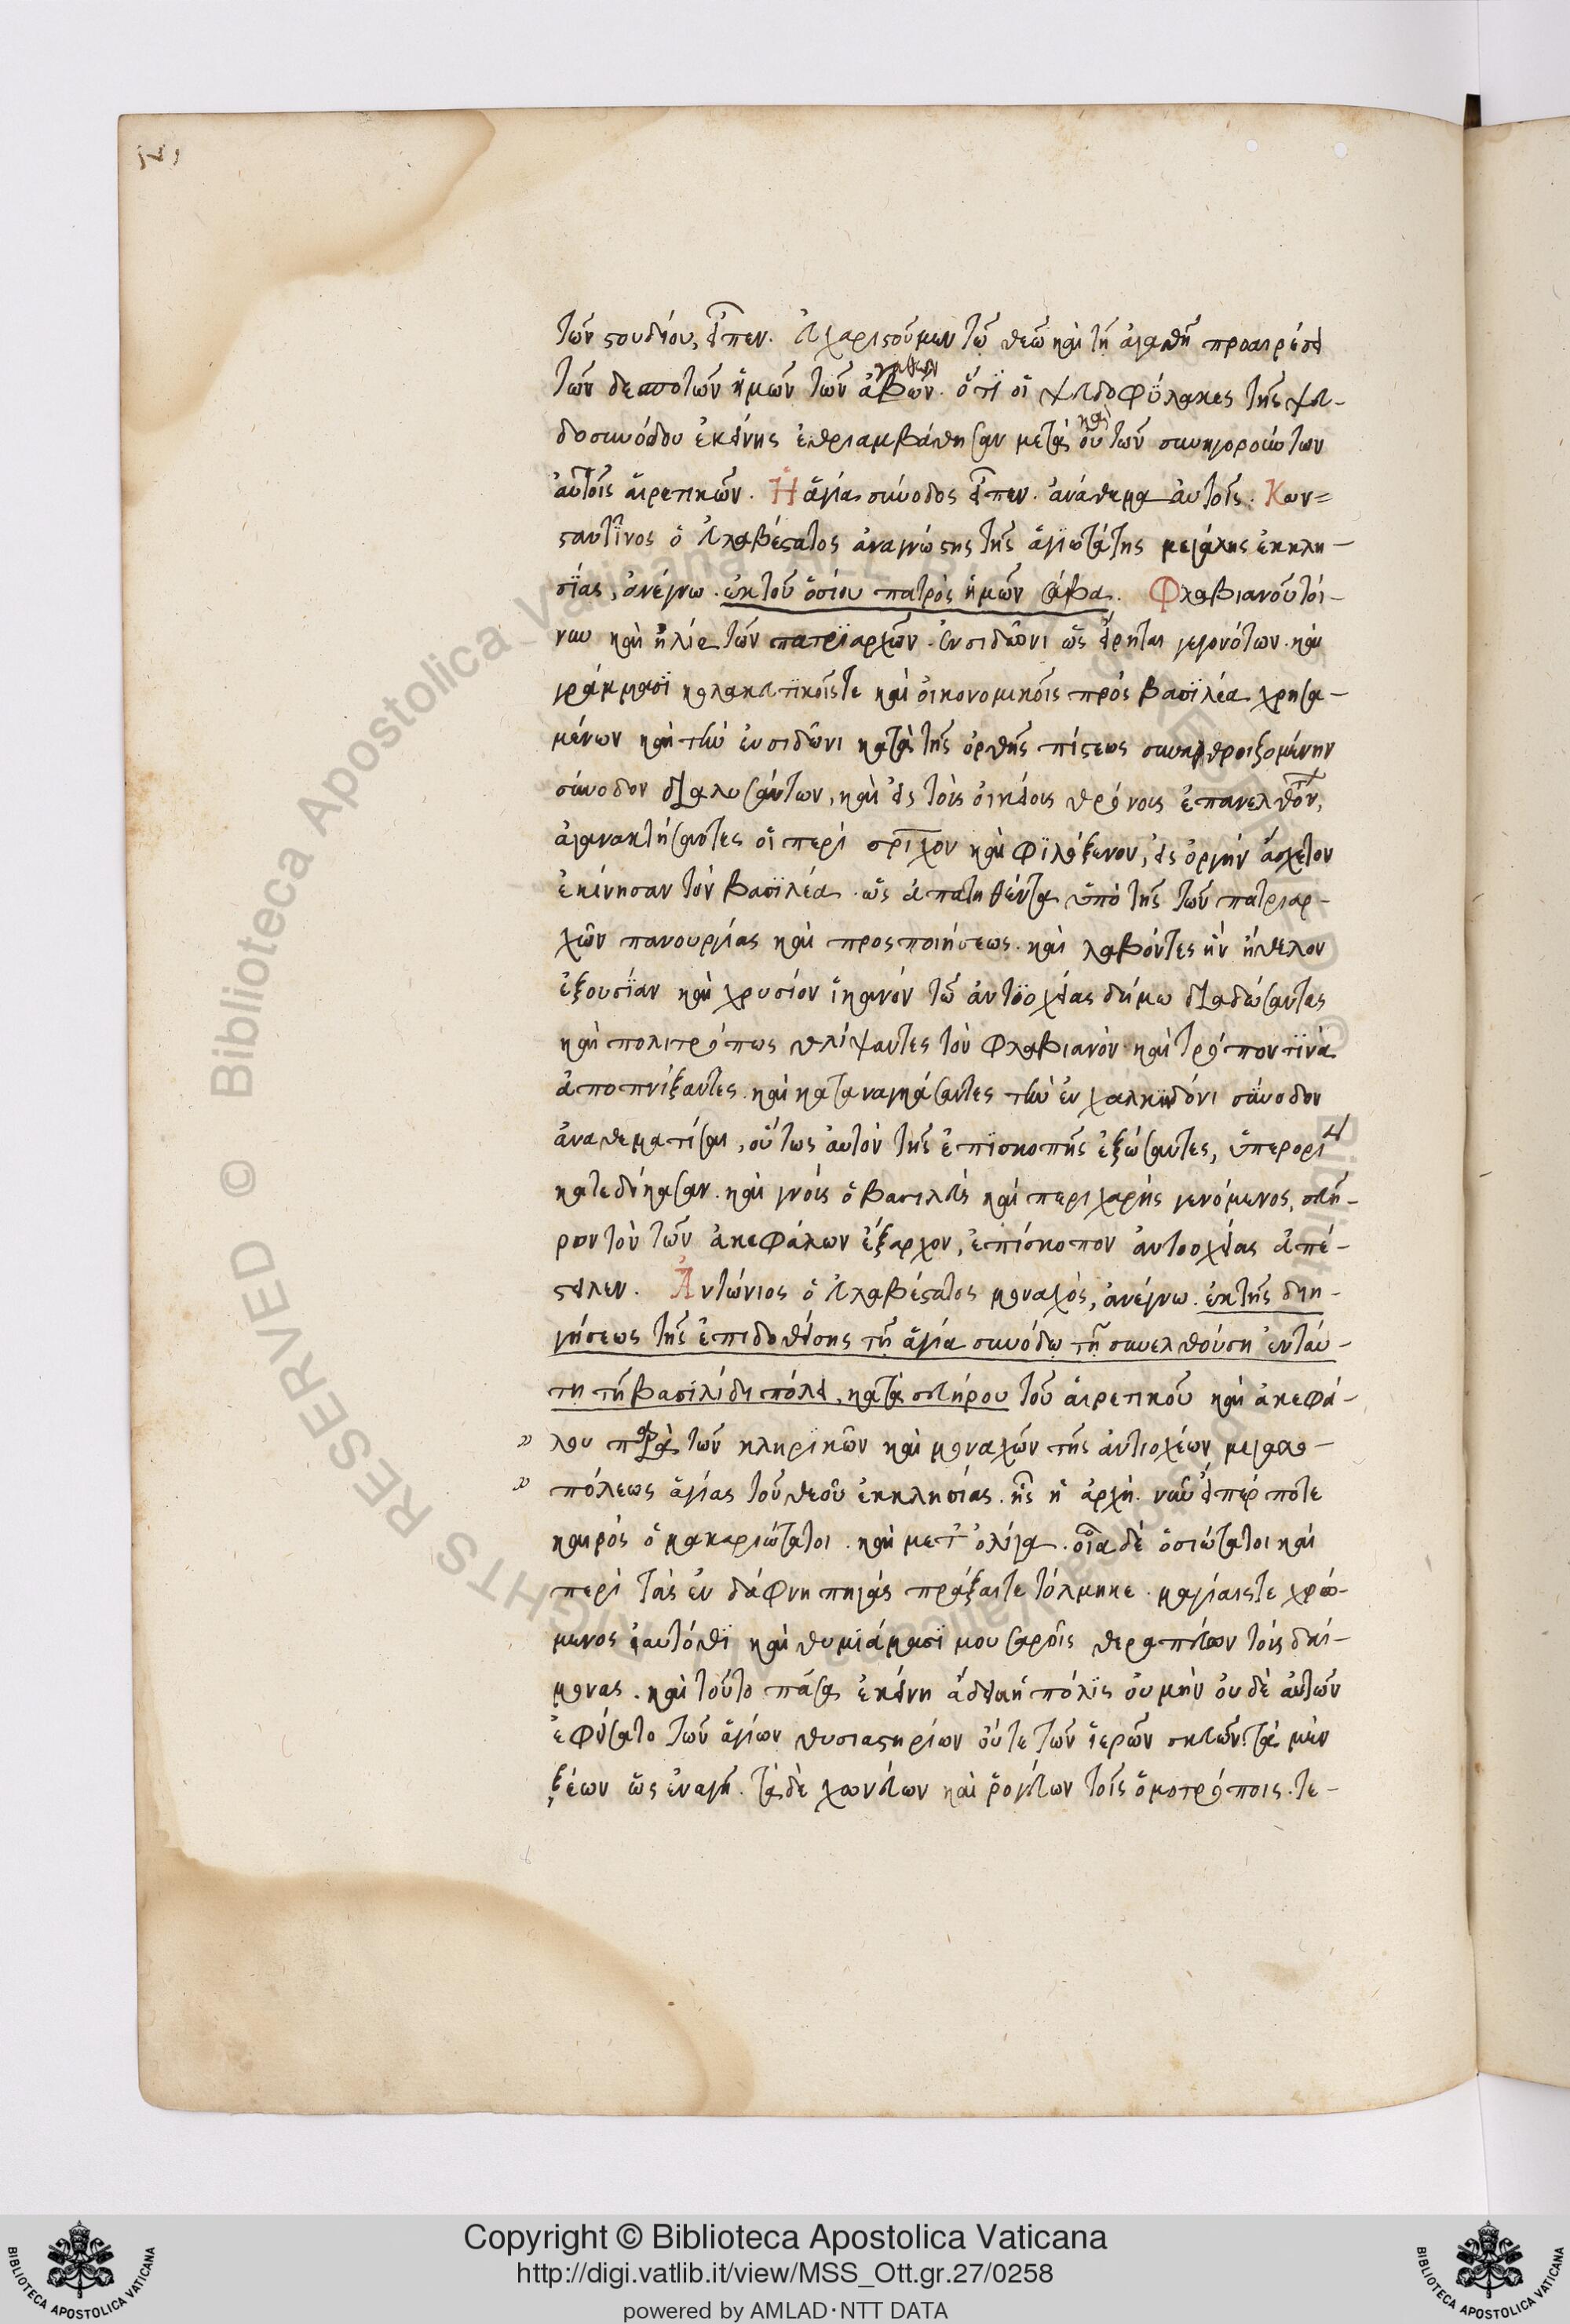 τῶν στουδίου, εἶπεν. εὐχαριστοῦμεν τῶ θεῶ καὶ τῆ ἀγαθῆ προαιρέσει
τῶν δεσποτῶν ἡμῶν τῶν ἀγαθῶν. ὅτι οἱ ψευδοφύλακες τῆς ψευ-
δοσυνόδου ἐκείνης ἐθριαμβεύθησαν μετὰ καὶ τῶν συνηγορούντων
αὐτοῖς αἱρετικῶν. Ἡ ἁγία σύνοδος εἶπεν. ἀνάθεμα αὐτοῖς. Κων=
σταντῖνος ὁ εὐλαβέστατος ἀναγνώστης τῆς ἁγιωτάτης μεγάλης ἐκκλη-
σίας, ἀνέγνω. ἐκ τοῦ ὁσίου πατρὸς ἡμῶν σάβα. Φλαβιανοῦ τοί-
νυν καὶ ἠλία τῶν πατριαρχῶν. ἐν σιδῶνι ὡς εἴρηται γεγονότων. καὶ
γράμμασι κολακευτικοῖς τε καὶ οἰκονομικοῖς πρὸς βασιλέα χρησα-
μένων καὶ τὴν ἐν σιδῶνι κατὰ τῆς ὀρθῆς πίστεως συναθροιζομένην
σύνοδον διαλυσάντων, καὶ εἰς τοὺς οἰκείους θρόνους ἐπανελθόντων,
ἀγανακτήσαντες οἱ περὶ σωτήριχον καὶ φιλόξενον, εἰς ὀργὴν ἄσχετον
ἐκίνησαν τὸν βασιλέα. ὡς ἀπατηθέντα ὑπὸ τῆς τῶν πατριαρ-
χῶν πανουργίας καὶ προσποιήσεως. καὶ λαβόντες ἣν ἤθελον
ἐξουσίαν καὶ χρυσίον ἱκανὸν τῶ ἀντιοχείας δήμω διαδώσαντες
καὶ πολιτρόπως θλίψαντες τὸν φλαβιανὸν. καὶ τρόπον τινὰ
ἀποπνίξαντες. καὶ καταναγκάσαντες τὴν ἐν χαλκιδόνι σύνοδον
ἀναθεματίσαι, οὕτως αὐτὸν τῆς ἐπισκοπῆς ἐξώσαντες, ὑπερορία
κατεδίκασαν. καὶ γνοὺς ὁ βασιλεὺς καὶ περιχαρὴς γενόμενος, σευῆ-
ρον τὸν τῶν ἀκεφάλων ἔξαρχον, ἐπίσκοπον ἀντιοχείας ἀπέ-
στειλεν. Ἀντώνιος ὁ εὐλαβέστατος μοναχὸς, ἀνέγνω. ἐκ τῆς διη-
γήσεως τῆς ἐπιδοθείσης τῆ ἁγία συνόδω τῆ συνελθούση ἐν ταύ-
τη τῆ βασιλίδι πόλει, κατὰ σευήρου τοῦ αἱρετικοῦ καὶ ἀκεφά-
λου παρὰ τῶν κληρικῶν καὶ μοναχῶν τῆς ἀντιοχέων μεγαλο-
πόλεως ἁγίας τοῦ θεοῦ ἐκκλησίας. ἧς ἡ ἀρχὴ. νῦν εἴπέρ ποτε
καιρὸς ὁ μακαριώτατοι. καὶ μετ' ὀλίγα. οἷα δὲ ὁσιώτατοι καὶ
περὶ τὰς ἐν δάφνη πηγὰς πράξαι τετόλμηκε. μαγίαις τε χρώ-
μενος αὐτόθι καὶ θυμιάμασι μουσαροῖς θεραπεύων τοὺς δαί-
μονας. καὶ τοῦτο πᾶσα ἐκείνη ἄδει ἡ πόλις οὐ μὴν οὐδὲ αὐτῶν
ἐφείσατο τῶν ἁγίων θυσιαστηρίων οὔτε τῶν ἱερῶν σκευῶν. τὰ μὲν
ξέων ὡς ἐναγῆ. τὰ δὲ χωνεύων καὶ ῥογεύων τοῖς ὁμοτρόποις. τε-
Copyright © Biblioteca Apostolica Vaticana
http://digi.vatlib.it/view/MSS_Ott.gr.27/0258
powered by AMLAD·NTT DATA